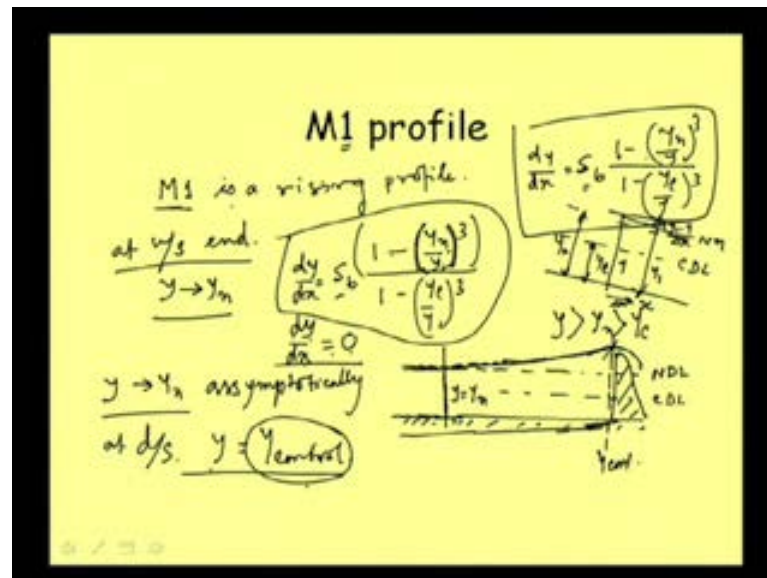 M1 profile
M1 is a rising profile.
at u/s end.
y → yn
dy/dx = Sb (1 - (yn/y)^3) / (1 - (yc/y)^3)
dy/dx = 0
y → yn assymptotically
at d/s. y = ycontrol
dy/dx = Sb (1 - (yn/y)^3) / (1 - (yc/y)^3)
yn yc y y1
CDL
x
y > yn > yc
NDL
y = yn
CDL
ycont.